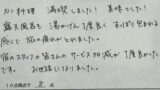 カニ料理 満喫しました! 美味でした!
露天風呂も 湯かげん丁度良く すっぽり包まれる
感じで 旅の疲れがとれました。
宿のスタッフの皆さんのサービス加減が丁度良かった
です。 お世話になりました。
10点満点で 8 点